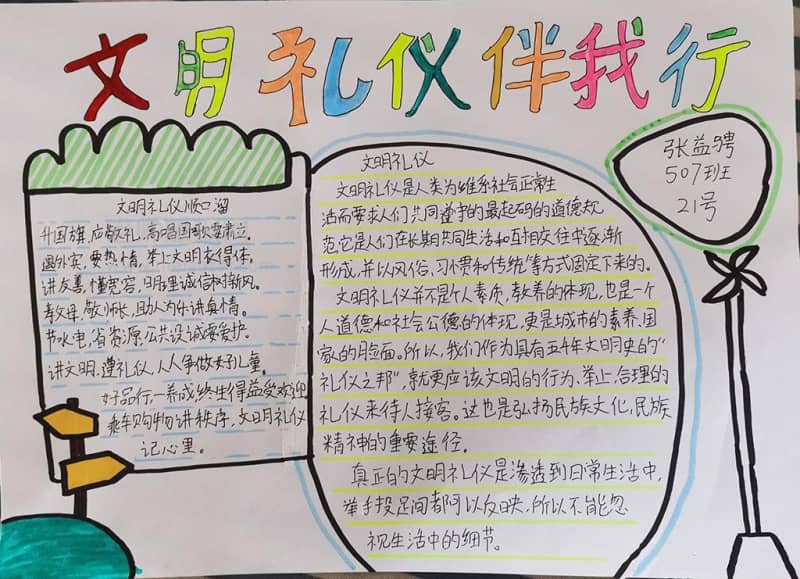 文明礼仪伴我行
张益骋
507班
21号
文明礼仪顺口溜
升国旗,应敬礼,高唱国歌要肃立。
遇外宾,要热情,举止文明教得体。
讲友善,懂宽容,明理诚信树新风。
孝父母,敬师长,助人为乐讲真情。
节水电,省资源,公共设诚要爱护。
讲文明,遵礼仪,人人争做好儿童。
好品行,一养成,终生得益受欢迎
乘车购物讲秩序,文明礼仪
记心里。
文明礼仪
文明礼仪是人类为维系社会正常生
活而要求人们共同遵守的最起码的道德规
范,它是人们在长期共同生活和互相交往中逐渐
形成,并以风俗、习惯和传统等方式固定下来的。
文明礼仪并不是个人素质、教养的体现,也是一个
人道德和社会公德的体现,更是城市的素养、国
家的脸面。所以,我们作为具有五千年文明史的“
礼仪之邦”,就更应该文明的行为、举止,合理的
礼仪来待人接客。这也是弘扬民族文化,民族
精神的重要途径。
真正的文明礼仪是渗透到日常生活中,
举手投足间都可以反映,所以不能忽
视生活中的细节。